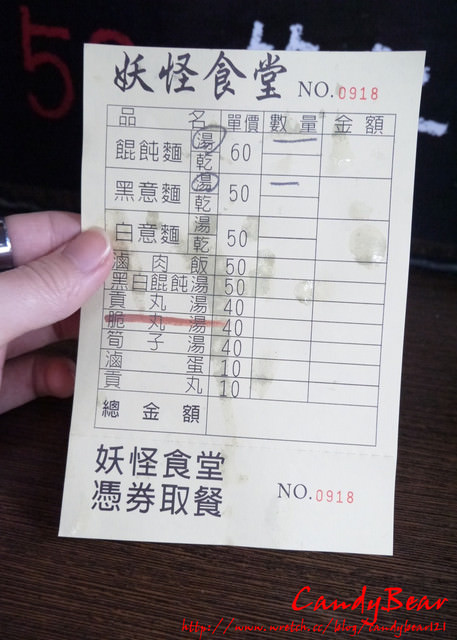 妖怪食堂 NO.0918
品名 單價 數量 金額
餛飩麵 湯 乾 60 一
黑意麵 湯 乾 50 一
白意麵 湯 乾 50
滷肉飯 50
黑白餛飩湯 50
貢丸湯 40
脆丸湯 40
筍子湯 40
滷蛋 10
貢丸 10
總金額
妖怪食堂
憑券取餐 NO.0918
CandyBear